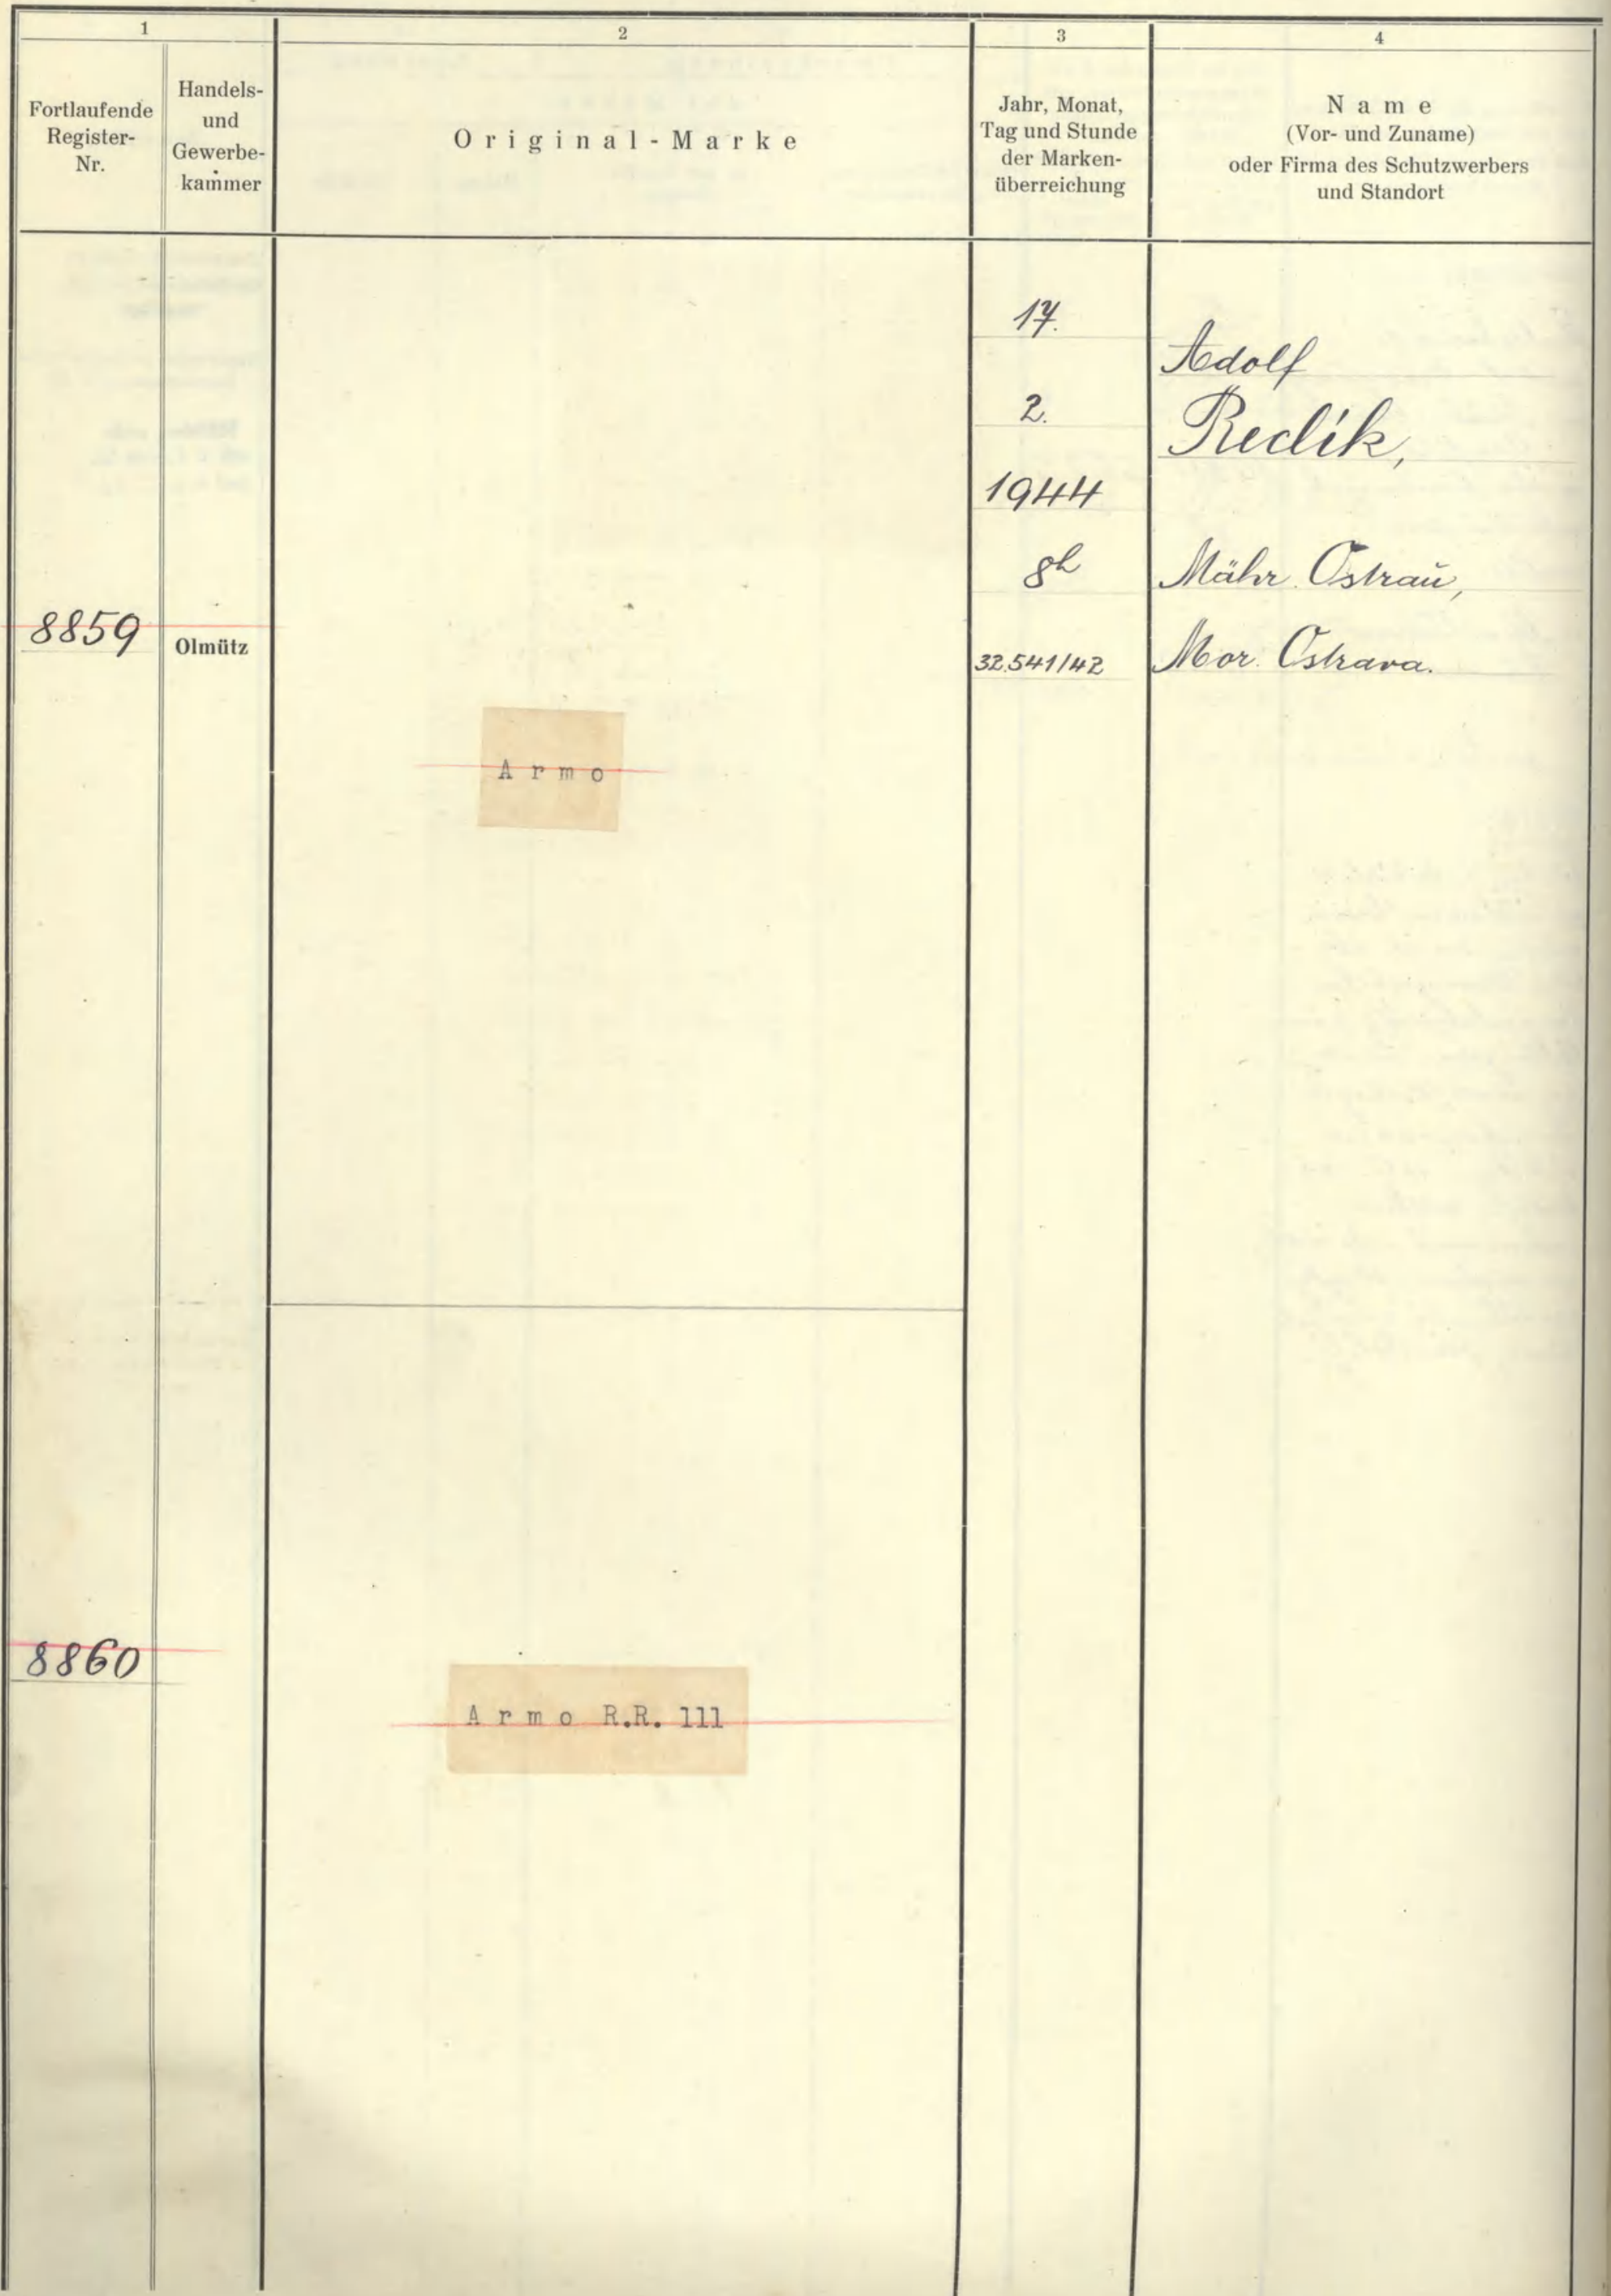 1
2
3
4
Fortlaufende
Register-
Nr.
Handels-
und
Gewerbe-
kammer
Original-Marke
Jahr, Monat,
Tag und Stunde
der Marken-
überreichung
Name
(Vor- und Zuname)
oder Firma des Schutzwerbers
und Standort
17.
Adolf
2.
1944
8h
Mähr. Ostrau,
8859
Olmütz
32.541/42
Mor. Ostrava.
Armo
8860
Armo R.R. 111